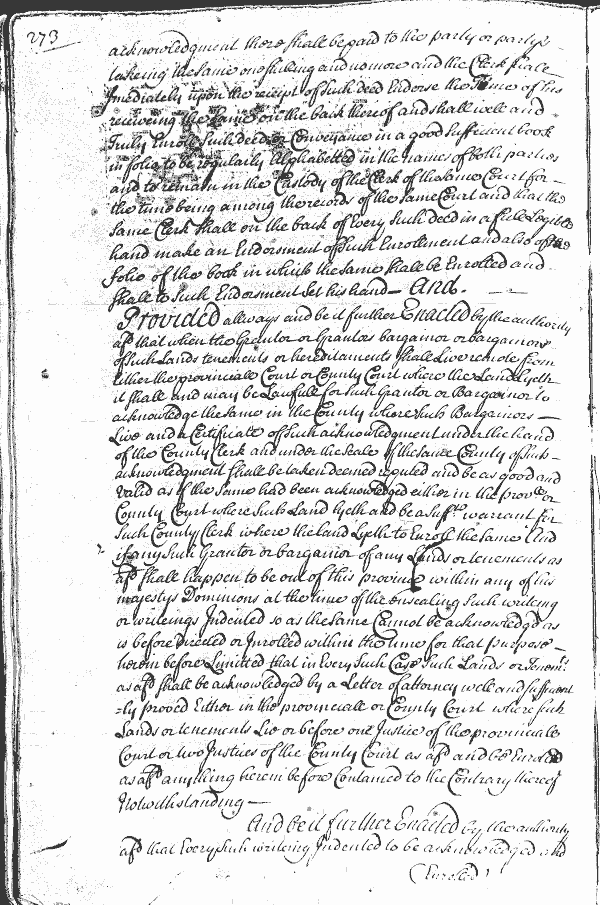 273
acknowledgment there shall be paid to the party or partys
takeing the same one shilling and no more and the Clerk shall
Imediately upon the receipt of such deed Endorse the time of his
receiveing the same on the back thereof and shall well and
Truly Enroll such deed or Conveyance in a good sufficient book
in folio to be regularly Alphabetted in the names of both parties
and to remain in the Custody of the Clerk of the same Court for
the time being among the records of the same Court and that the
same Clerk shall on the back of Every such deed in a full Legible
hand make an Endorsment of such Enrollment and also of the
folio of the book in which the same shall be Enrolled and
shall to such Endorsment set his hand - And.
Provided allways and be it further Enacted by the authority
afd that when the Grantor or Grantors bargainor or bargainors
of such Lands tenements or hereditaments shall Live remote from
either the provinciall Court or County Court where the Land Lyeth
it shall and may be Lawfull for such Grantor or Bargainor to
acknowledge the same in the County where such Bargainors -
Live and a Certificate of such acknowledgment under the hand
of the County Clerk and under the Seale of the same County of such -
acknowledgment shall be taken deemed reputed and be as good and
valid as if the same had been acknowledged either in the provll or
County Court where such Land lyeth and be a sufft. warrant for
such County Clerk where the land Lyeth to Enroll the same And
if any such Grantor or bargainor of any Lands or tenements as
afd shall happen to be out of this province within any of his
majestys Dominions at the time of the ensealing such writeing
or writeings Indented so as the same Cannot be acknowledged as
is before directed or Inrolled within the time for that purpose -
herein before Limitted that in Every such Case such Lands or tenemts
as afd shall be acknowledged by a Letter of attorney well and sufficient
-ly proved Either in the provinciall or County Court where such
Lands or tenements Lie or before one Justice of the provinciall
Court or two Justices of the County Court as afd and be Enrolled
as afd any thing herein before Contained to the Contrary thereof
Notwithstanding -
And be it further Enacted by the authority
afd that Every such writeing Indented to be acknowledged and
Enrolled